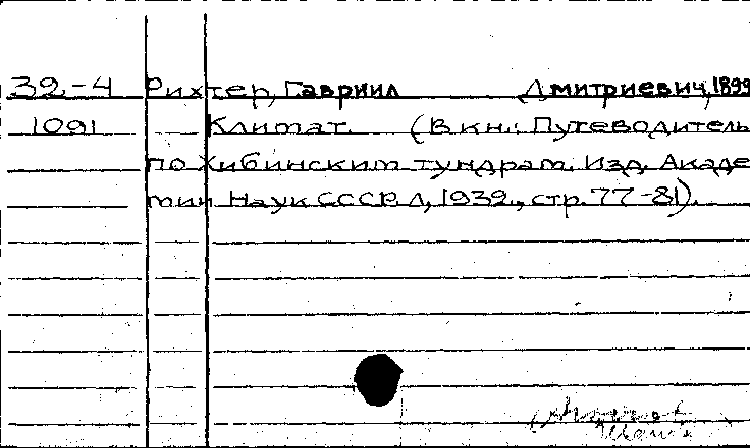 32-4 Рихтер, Гавриил Дмитриевич, 1899
1091 Климат. (В кн.: Путеводитель
по Хибинским тундрам. Изд. Акаде
мии Наук СССР. Л, 1932., стр. 77-81).